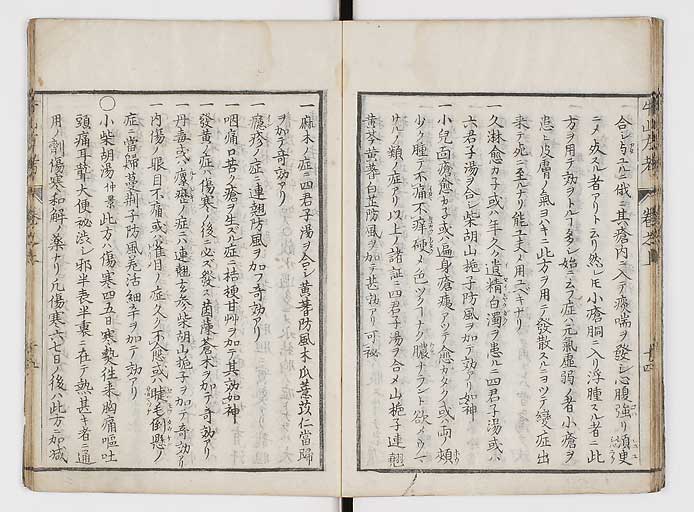 合シ与ユベシ俄ニ其瘡内ニ入テ痰喘ヲ發シ心腹強リ煩
ニメ皮スル者アリト云リ然レモ小瘡胴ニ入リ浮腫スル者ニ此
方ヲ用テ効ヲトルヿ多シ始ニ云フ症ハ元氣虚弱ノ者小瘡ヲ
患ヒ皮膚ノ氣ヨハキニ此方ヲ用テ發散スルニヨツテ變症出
来テ死ニ至ルナリ能工夫メ用ユベキナリ
一久淋愈カヌ或ハ年久ク遺精白濁ヲ患ルニ四君子湯或ハ
六君子湯ヲ合シ柴胡山梔子防風ヲ加テ効アリ如神
一小児歯瘡愈カヌ或ハ遍身瘡瘍アツテ愈カタク或ハ両頬
少ク腫テ不痛不痒硬メ色ツク ナク膿ナラント欲メ
サルノ類ノ症アリ以上ノ諸証ニ四君子湯ヲ合メ山梔子連翹
黄芩黄蓍白芷防風ヲ加テ甚効アリ可秘
一麻木ノ症ニ四君子湯ヲ合シ黄蓍防風木瓜薏苡仁當歸
ヲ加テ奇効アリ
一癮疹ノ症ニ連翹防風ヲ加フ奇効アリ
一咽痛口苦ク瘡ヲ生ズル症ニ桔梗甘艸ヲ加テ其効如神
一發黄ノ症ハ傷寒ノ後ニ必ズ發ス茵蔯蒼朮ヲ加テ奇効アリ
一丹毒或ハ ノ症ハ連翹玄参柴胡山梔子ヲ加テ奇効アリ
一内傷ノ眼目不痛或ハ雀目ノ症久ク不愈或ハ睫毛倒懸ノ
症ニ當歸蔓荊子防風羌活細辛ヲ加テ効アリ
〇小柴胡湯仲景此方ハ傷寒四五日寒熱往来胸痛嘔吐
頭痛耳聾大便秘渋シ邪半表半裏ニ在テ熱甚キ者ニ通
用ノ劑傷寒和解ノ藥ナリ凡傷寒六七日ノ後ハ此方ニ加减